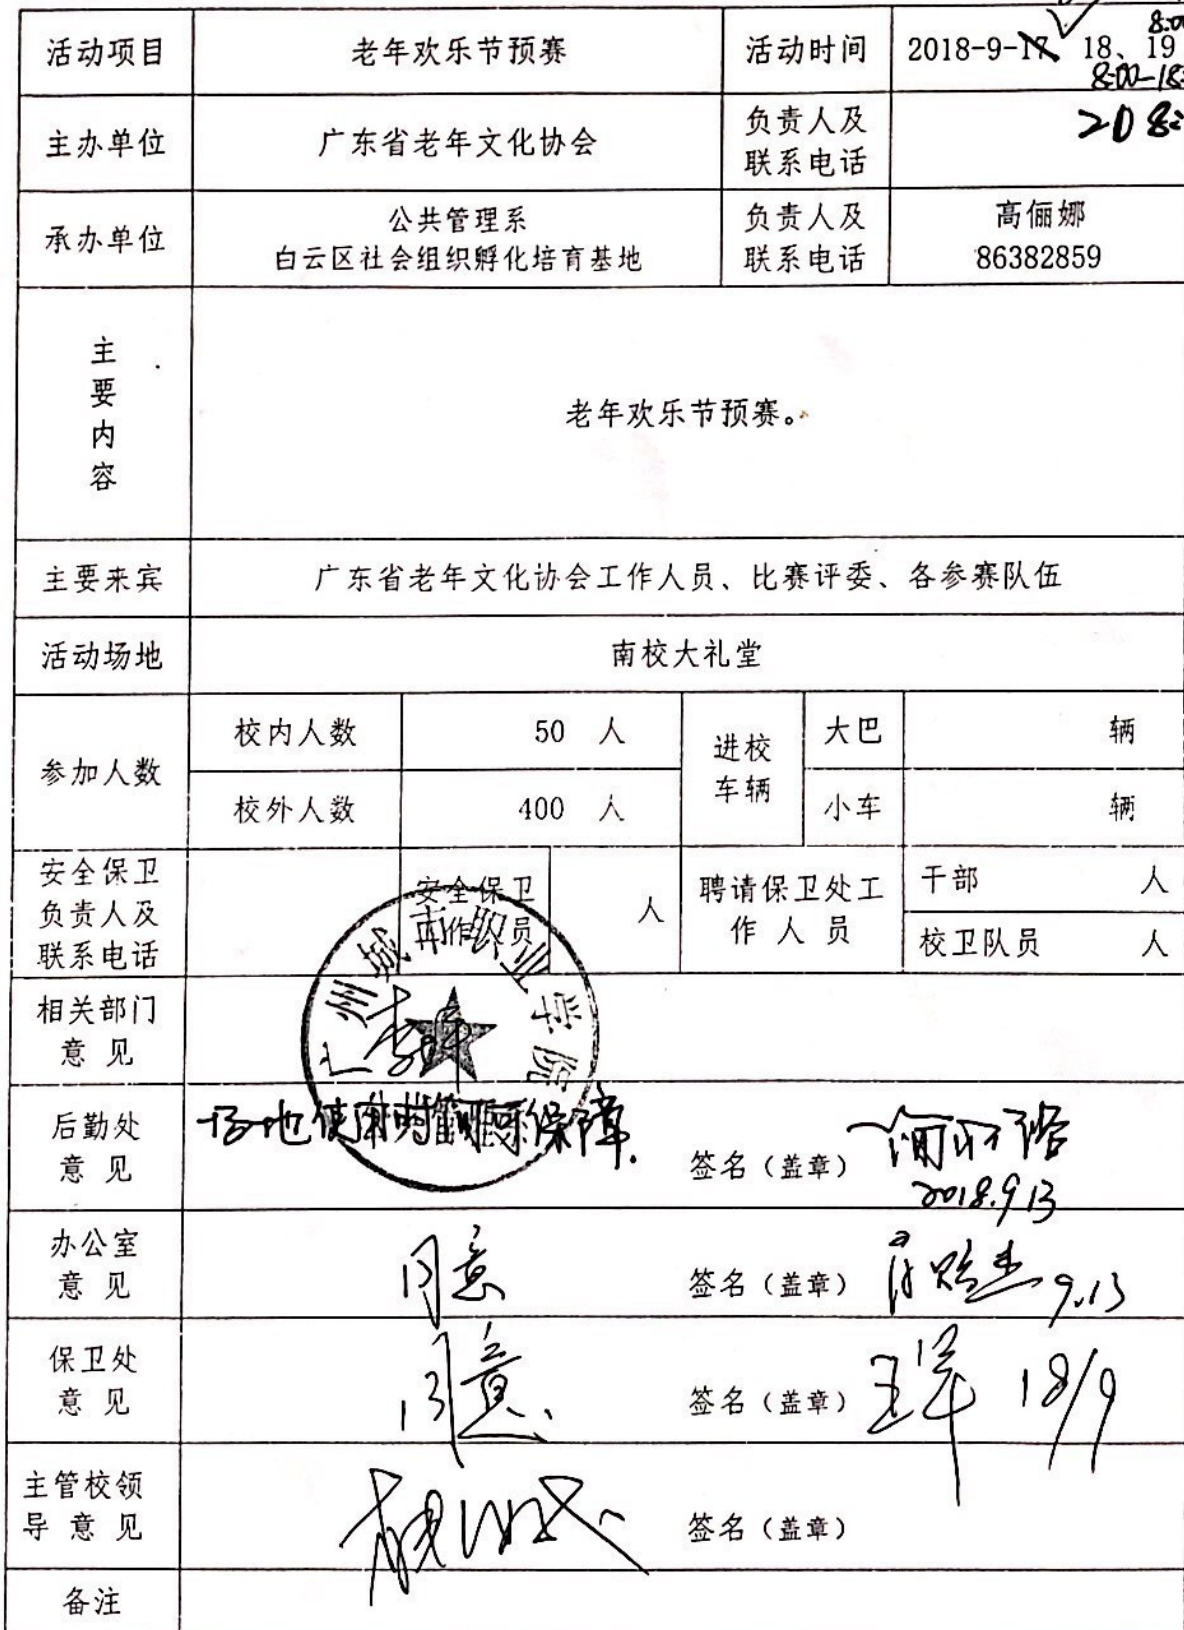 活动项目 老年欢乐节预赛 活动时间 2018-9-17、18、19
8:00-18:
主办单位 广东省老年文化协会 负责人及联系电话
承办单位 公共管理系
白云区社会组织孵化培育基地 负责人及联系电话 高俪娜
86382859
主要内容 老年欢乐节预赛。
主要来宾 广东省老年文化协会工作人员、比赛评委、各参赛队伍
活动场地 南校大礼堂
参加人数 校内人数 50 人 进校车辆 大巴 辆
校外人数 400 人 小车 辆
安全保卫负责人及联系电话 安全保卫工作人员 人 聘请保卫处工作人员 干部 人
校卫队员 人
广州城市职业学院
相关部门意见
后勤处意见 场地使用 保障. 签名（盖章）
2018.9.13
办公室意见 同意 签名（盖章） 9.13
保卫处意见 同意、 签名（盖章） 18/9
主管校领导意见 签名（盖章）
备注